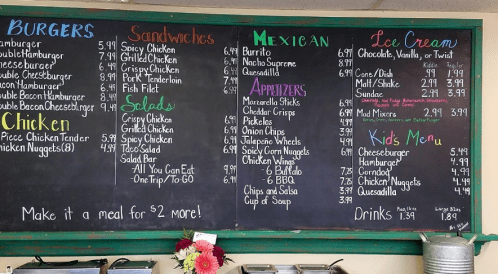 BURGERS
amburger 5.99
ouble Hamburger 7.99
heeseburger 6.49
ouble Cheeseburger 8.99
acon Hamburger 6.49
ouble Bacon Hamburger 8.49
ouble Bacon Cheeseburger 9.49
Chicken
Piece Chicken Tender 5.99
hicken Nuggets(8) 4.99
Sandwiches
Spicy Chicken 6.49
Grilled Chicken 6.49
Crispy Chicken 6.49
Pork Tenderloin 7.49
Fish Filet 6.99
Salads
Crispy Chicken 6.99
Grilled Chicken 6.99
Spicy Chicken 6.99
Taco Salad 6.99
Salad Bar
-All You Can Eat 9.99
-One Trip/To Go 6.99
MEXICAN
Burrito 6.99
Nacho Supreme 8.99
Quesadilla 6.99
Appetizers
Mozzarella Sticks 6.99
Cheddar Crisps 6.99
Pickelos 4.99
Onion Chips 3.99
Jalapeno Wheels 4.99
Spicy Corn Nuggets 6.99
Chicken Wings
-6 Buffalo 7.75
-6 BBQ 7.75
Chips and Salsa 3.99
Cup of Soup 3.99
Ice Cream
Chocolate, Vanilla, or Twist
Kiddie Regular
Cone/Dish .99 1.99
Malt/Shake 2.99 3.99
Sundae 2.99 3.99
Mud Mixers 2.99 3.99
Kid's Menu
Cheeseburger 5.49
Hamburger 4.99
Corndog 4.99
Chicken Nuggets 4.49
Quesadilla 4.49
Make it a meal for $2 more!
Drinks 1.39 1.89